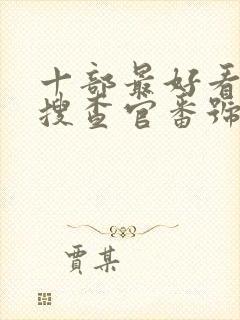 十部最好看
搜查官番號
賈某